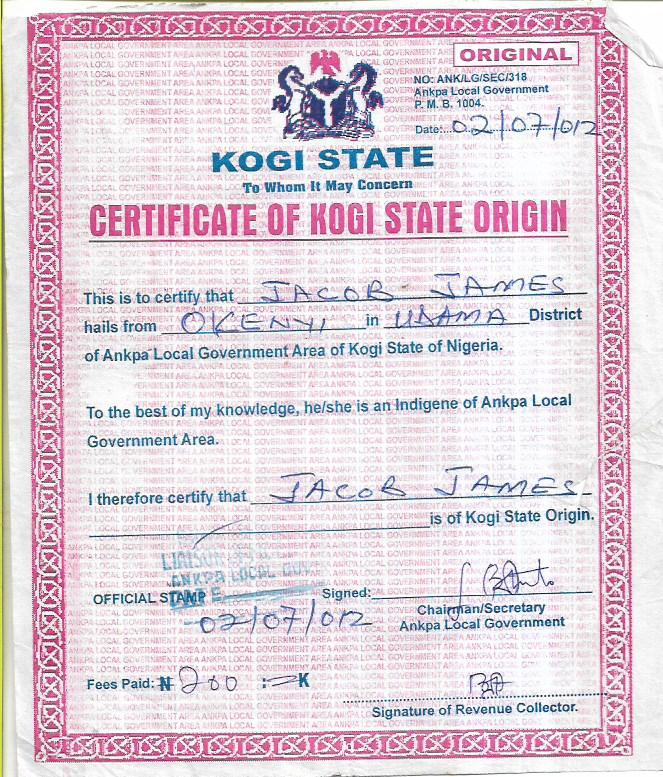 ORIGINAL
NO: ANK/LG/SEC/318
Ankpa Local Government
P. M. B. 1004.
Date: 02/07/012
KOGI STATE
To Whom It May Concern
CERTIFICATE OF KOGI STATE ORIGIN
This is to certify that JACOB JAMES
hails from OKENYI in USAMA District
of Ankpa Local Government Area of Kogi State of Nigeria.
To the best of my knowledge, he/she is an Indigene of Ankpa Local
Government Area.
I therefore certify that JACOB JAMES
is of Kogi State Origin.
LIAISON
ANKPA LOCAL GOV
OFFICIAL STAMP
Signed:
02/07/012
Chairman/Secretary
Ankpa Local Government
Fees Paid: ₦ 200 : = K
Signature of Revenue Collector.